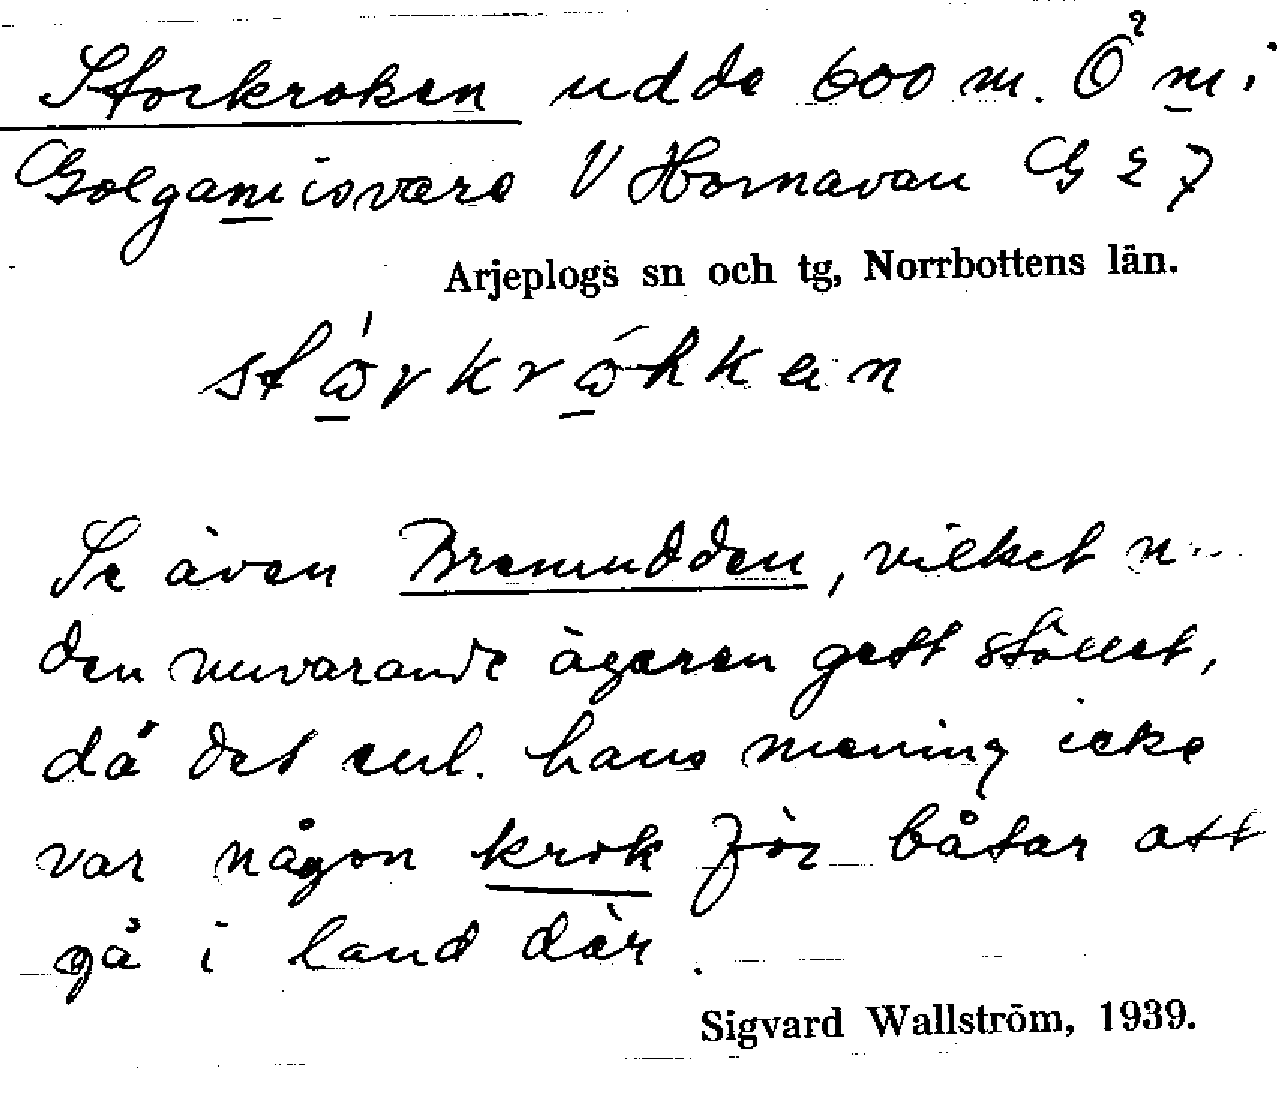 Storkroken udde 600 m. Ö m i
Galgamisvare V Hornavan G 2 7
Arjeplogs sn och tg, Norrbottens län.
Se även Brenudden, vilket
den nuvarande ägaren gett stället,
då det enl. hans mening icke
var någon krok för båtar att
gå i land där.
Sigvard Wallström, 1939.